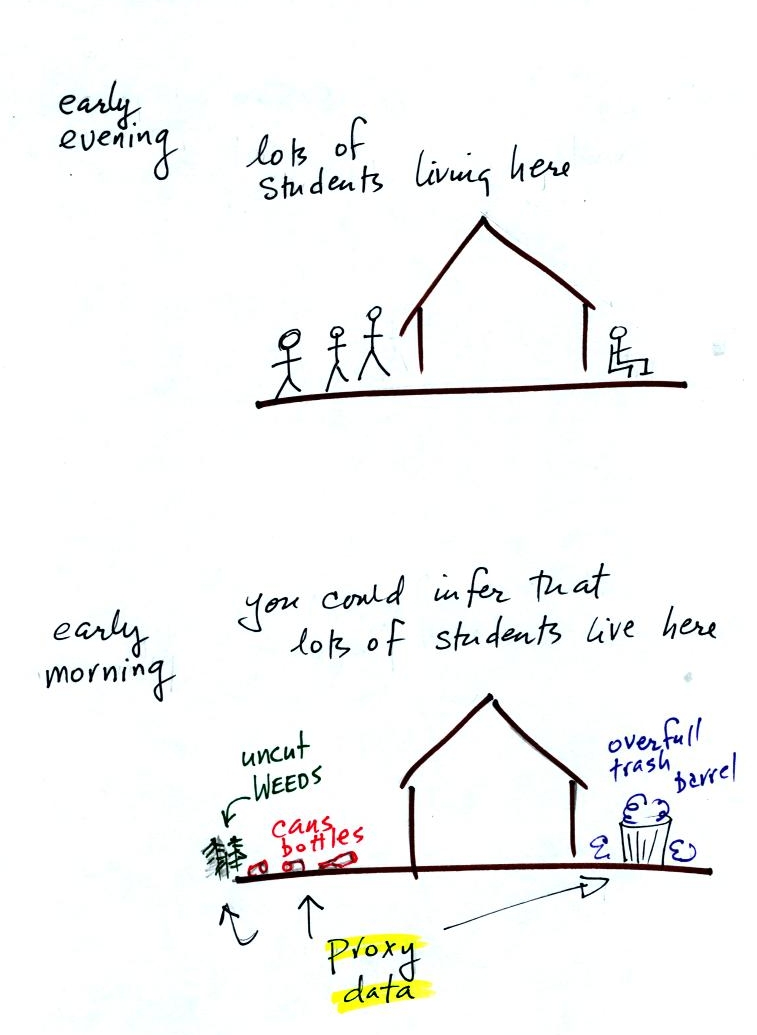 early
evening
lots of
students living here
early
morning
you could infer that
lots of students live here
uncut
WEEDS
cans
bottles
overfull
trash
barrel
Proxy
data